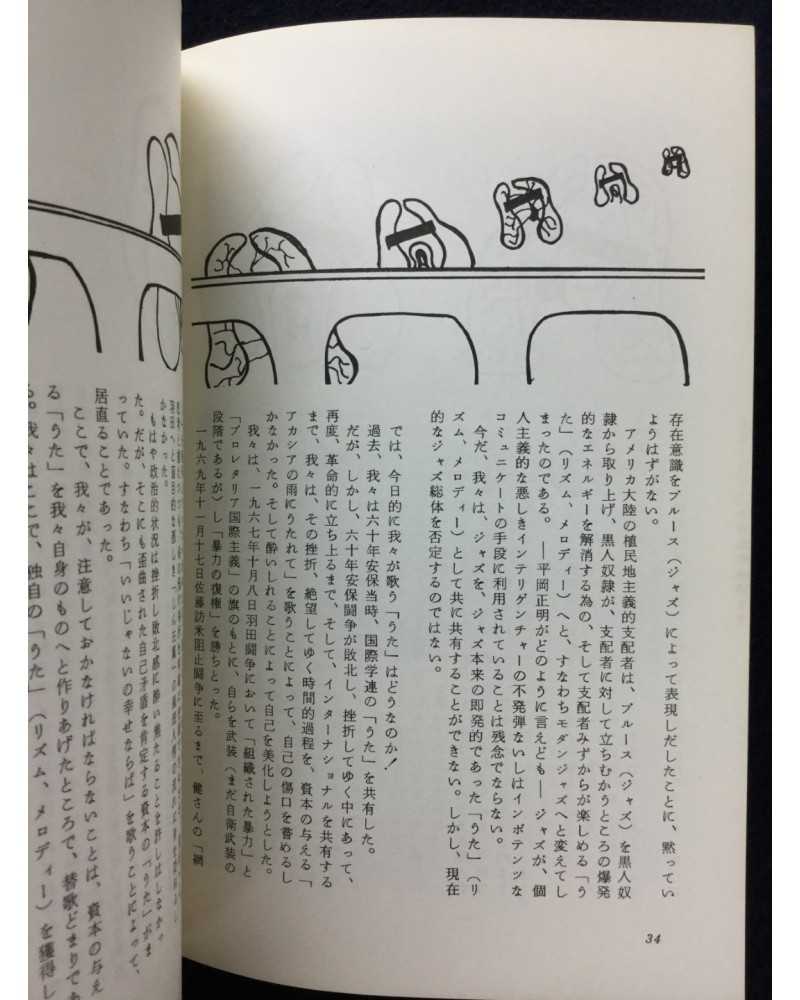 存在意識をブルース（ジャズ）によって表現しだしたことに、黙ってい
ようはずがない。
アメリカ大陸の植民地主義的支配者は、ブルース（ジャズ）を黒人奴
隷から取り上げ、黒人奴隷が、支配者に対して立ちむかうところの爆発
的なエネルギーを解消する為の、そして支配者みずからが楽しめる「う
た」（リズム、メロディー）へと、すなわちモダンジャズへと変えてし
まったのである。―平岡正明がどのように言えども―ジャズが、個
人主義的な悪しきインテリゲンチャーの不発弾ないしはインポテンツな
コミュニケートの手段に利用されていることは残念でならない。
今だ、我々は、ジャズを、ジャズ本来の即発的であった「うた」（リ
ズム、メロディー）として共に共有することができない。しかし、現在
的なジャズ総体を否定するのではない。
では、今日的に我々が歌う「うた」はどうなのか！
過去、我々は六十年安保当時、国際学連の「うた」を共有した。
だが、しかし、六十年安保闘争が敗北し、挫折してゆく中にあって、
再度、革命的に立ち上るまで、そして、インターナショナルを共有する
まで、我々は、その挫折、絶望してゆく時間的過程を、資本の与える「
アカシアの雨にうたれて」を歌うことによって、自己の傷口を嘗めるし
かなかった。そして酔いしれることによって自己を美化しようとした。
我々は、一九六七年十月八日羽田闘争において「組織された暴力」と
「プロレタリア国際主義」の旗のもとに、自らを武装（まだ自衛武装の
段階であるが）し「暴力の復権」を勝ちとった。
一九六九年十一月十七日佐藤訪米阻止闘争に至るまで、健さんの「網
34
かなかった。
もはや政治的状況は挫折し敗北感に酔い痴たることを許しはしなかっ
た。だが、そこにも歪曲された自己矛盾を肯定する資本の「うた」がま
っていた。すなわち「いいじゃないの幸せならば」を歌うことによって、
居直ることであった。
ここで、我々が、注意しておかなければならないことは、資本の与え
る「うた」を我々自身のものへと作りあげたところで、替歌どまりであ
る。我々はここで、独自の「うた」（リズム、メロディー）を獲得し